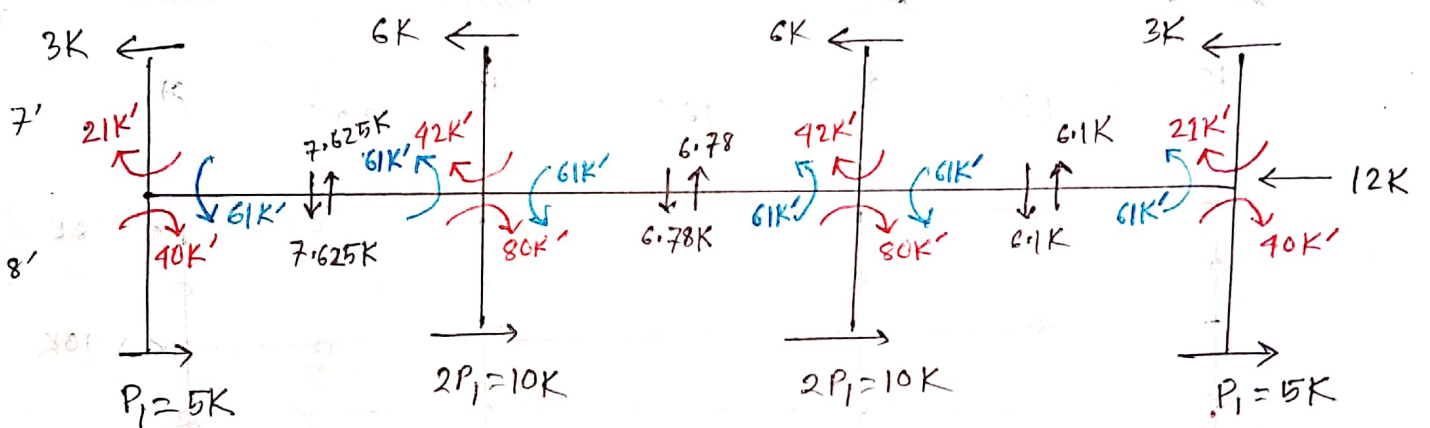 3K 6K 6K 3K
7' 21K' 7.625K 61K' 42K' 61K' 6.78 42K' 61K' 6.1K 21K'
12K
8' 40K' 61K' 7.625K 80K' 6.78K 61K' 80K' 6.1K 61K' 40K'
P₁=5K 2P₁=10K 2P₁=10K P₁=5K